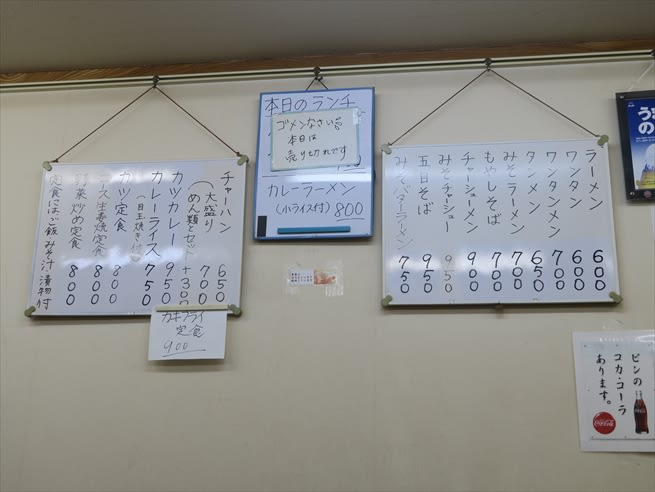 チャーハン 650
(大盛り 700
めん類とセット +300
カツカレー 950
カレーライス 750
(目玉焼き付)
カツ定食 800
ース生姜焼定食 800
野菜炒め定食 800
定食にはご飯 みそ汁 漬物付
カキフライ
定食
900
本日のランチ
ゴメンなさい
本日は
売り切れです
カレーラーメン
(小ライス付) 800
ラーメン 600
ワンタン 600
ワンタンメン 700
タンメン 650
みそラーメン 700
もやしそば 700
チャーシューメン 900
みそチャーシュー 950
五目そば 950
みそバターラーメン 750
ビンの
コカ・コーラ
あります。